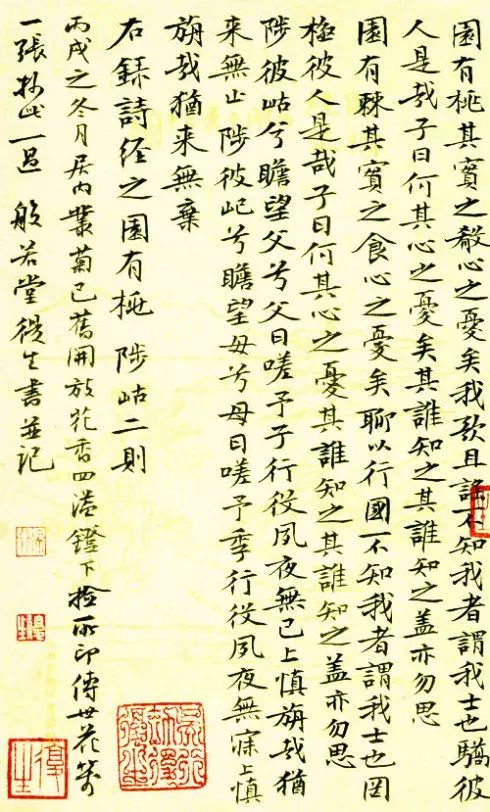 園有桃其實之殽心之憂矣我歌且謠不知我者謂我士也驕彼
人是哉子曰何其心之憂矣其誰知之其誰知之蓋亦勿思
園有棘其實之食心之憂矣聊以行國不知我者謂我士也罔
極彼人是哉子曰何其心之憂其誰知之其誰知之蓋亦勿思
陟彼岵兮瞻望父兮父曰嗟予子行役夙夜無已上慎旃哉猶
来無止陟彼屺兮瞻望母兮母曰嗟予季行役夙夜無寐上慎
旃哉猶来無棄
右録詩经之園有桃陟岵二則
丙戌之冬月居内叢菊已舊開放花香四溢鐙下撿所印傳世花箋
一張抄此一過 般若堂 生書並記